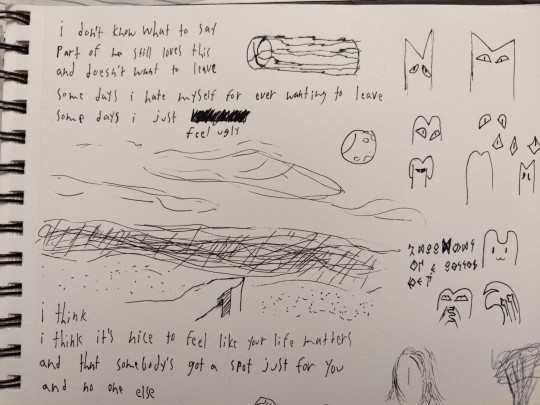 i don't know what to say
part of me still loves this
and doesn't want to leave
some days i hate myself for ever wanting to leave
some days i just
feel ugly
i think
i think it's nice to feel like your life matters
and that somebody's got a spot just for you
and no one else